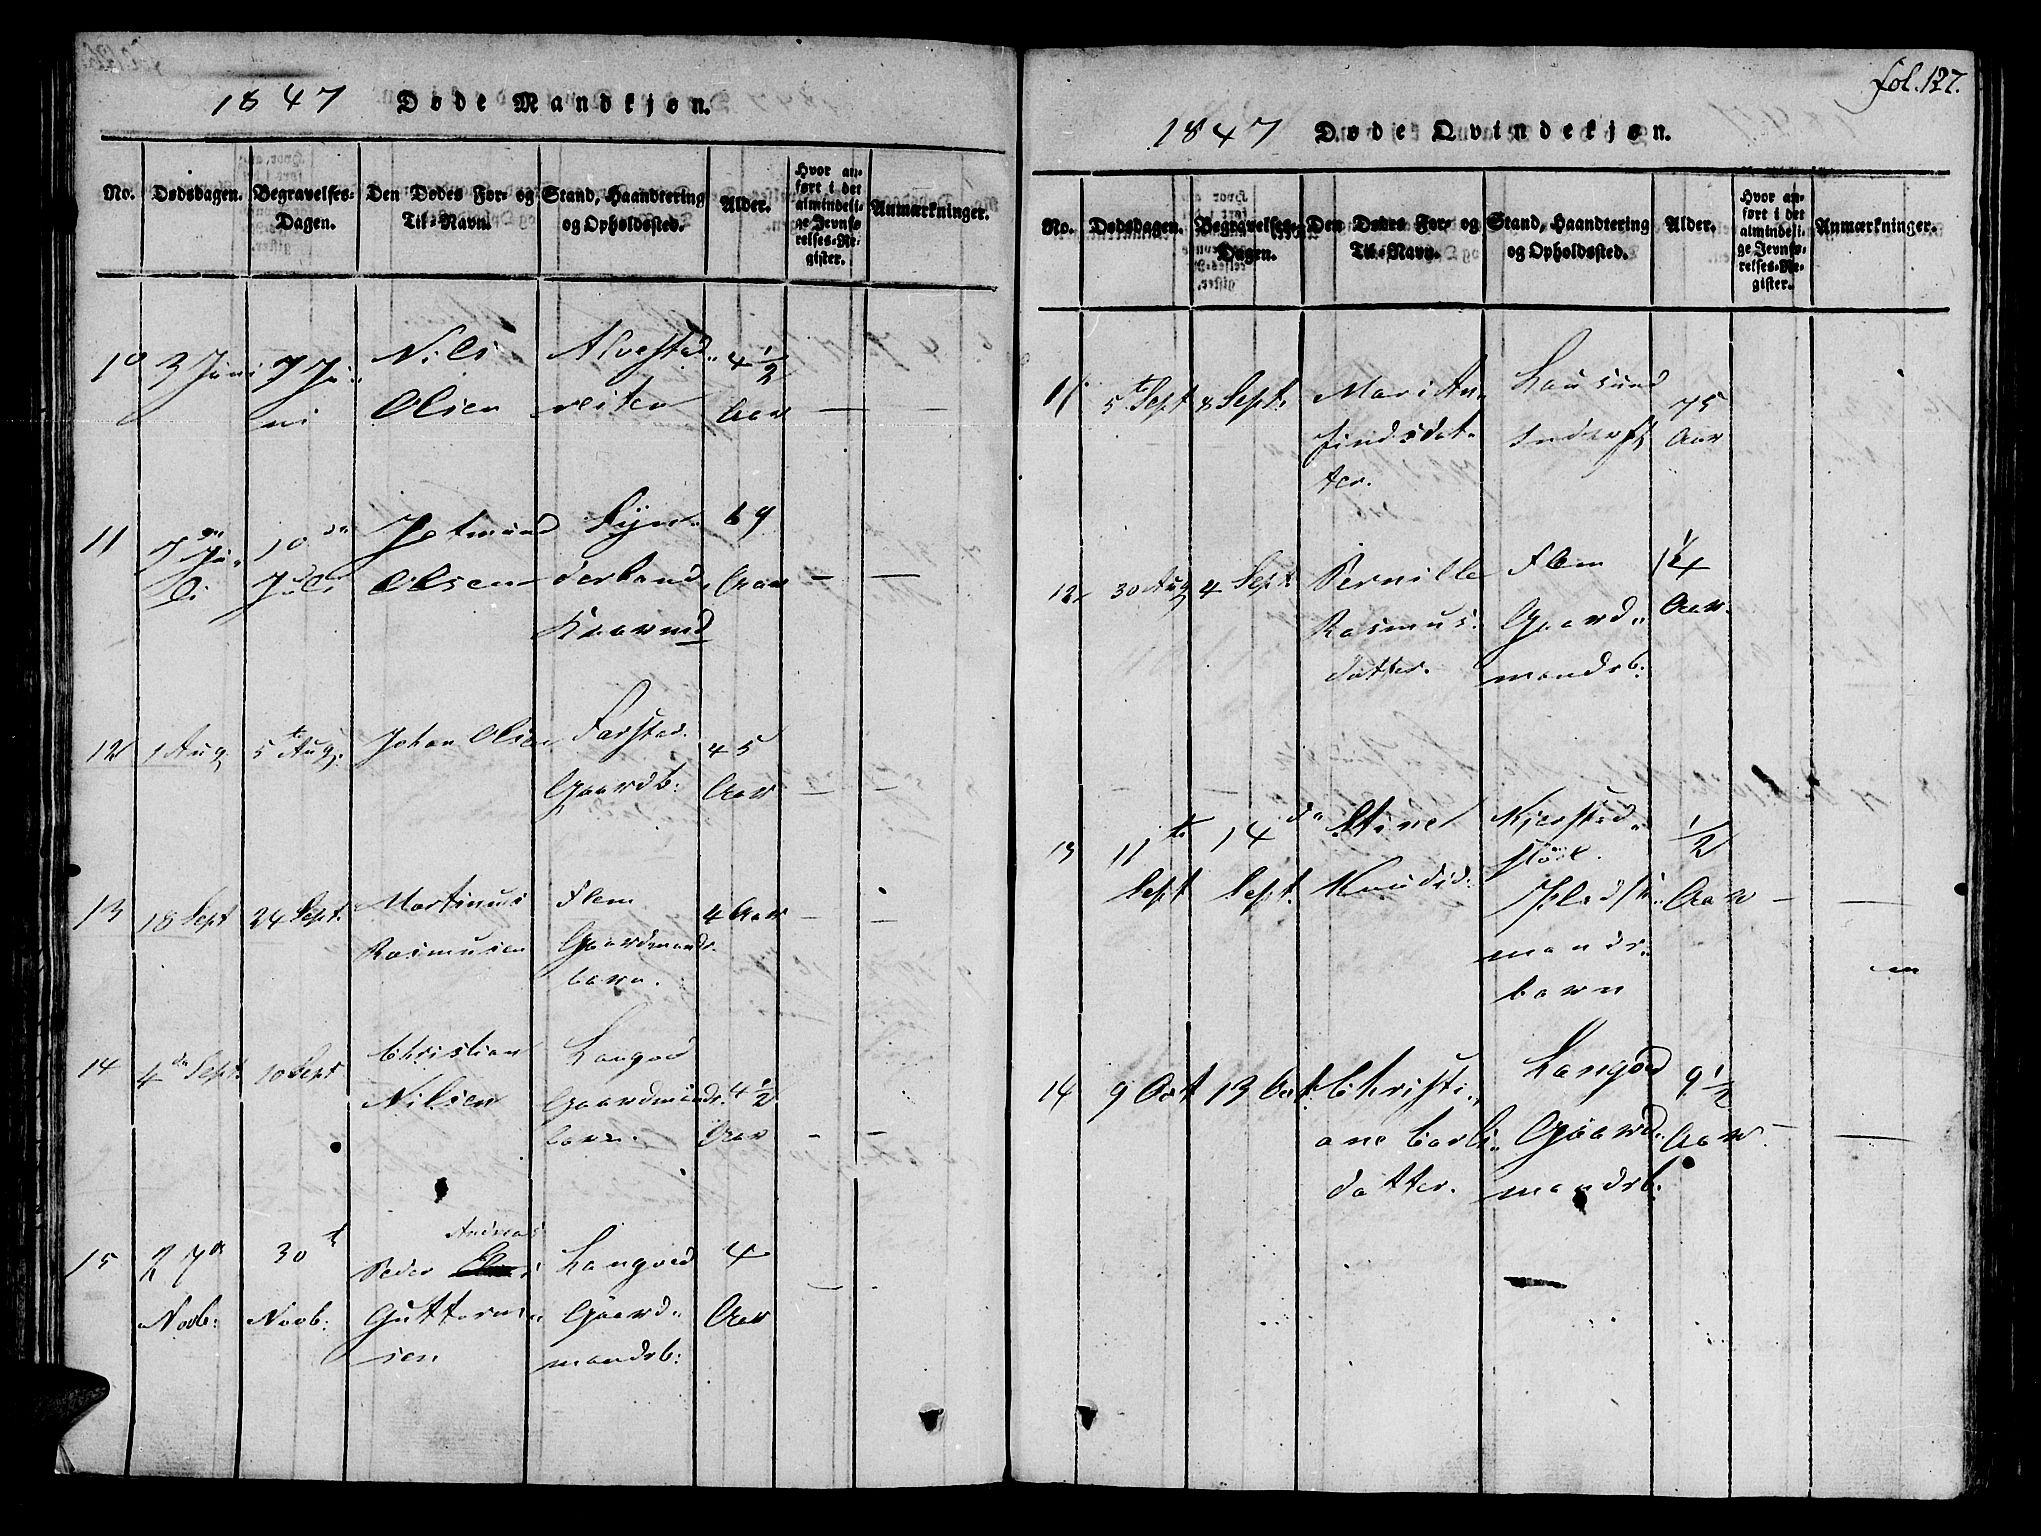 1847 Døde Mandkjøn.
No. Dødsdagen. Begravelses-Dagen. Den Dødes For- og Til-Navn. Stand, Haandtering og Opholdssted. Alder. Hvor anført i det almindelige Jevnførelses-Register. Anmærkninger.
10 3 Juni 7 Ju-
ni
Nils
Olsen
Alvestad-
reiten
4 1/2
Aar — —
11 7de Ju-
li
10de
Juli
Jetmund
Olsen
derland
Kaarmd
69
Aar — —
12 1 Aug 5te Aug: Johan Olsen Farstad
Gaardb:
45
Aar — —
13 18 Sept 24 Sept. Martinus
Rasmusen
Flem
Gaardmands-
barn.
4 Aar — —
14 4de Sept. 10 Sept Christian
Nilsen
Longvad
Gaardmands-
barn.
4 1/2
Aar — —
15 27de
Novb:
30te
Novb:
Andreas
Peder
Guttorm-
sen
Longvad
Gaard-
mandsb:
4
Aar —
fol. 127.
1847 Døde Qvindekjøn.
No. Dødsdagen. Begravelses-Dagen. Den Dødes For- og Til-Navn. Stand, Haandtering og Opholdssted. Alder. Hvor anført i det almindelige Jevnførelses-Register. Anmærkninger.
11 5te Sept 8 Sept. Mari An-
findsdat-
ter.
Lausund
Inderst
75
Aar
12 30 Aug 4 Sept. Pernille
Rasmus-
datter.
Flem
Gaard-
mandsb:
1 1/4
Aar.
13 11te
Sept
14de
Sept.
Stine
Knudsd:
Kjerstad-
Plads-
mands-
barn
1/2
Aar — —
14 9 Oct 13 Oct. Christi-
ane Carls-
datter.
Longvad
Gaard-
mandsb:
9 1/2
Aar. — —